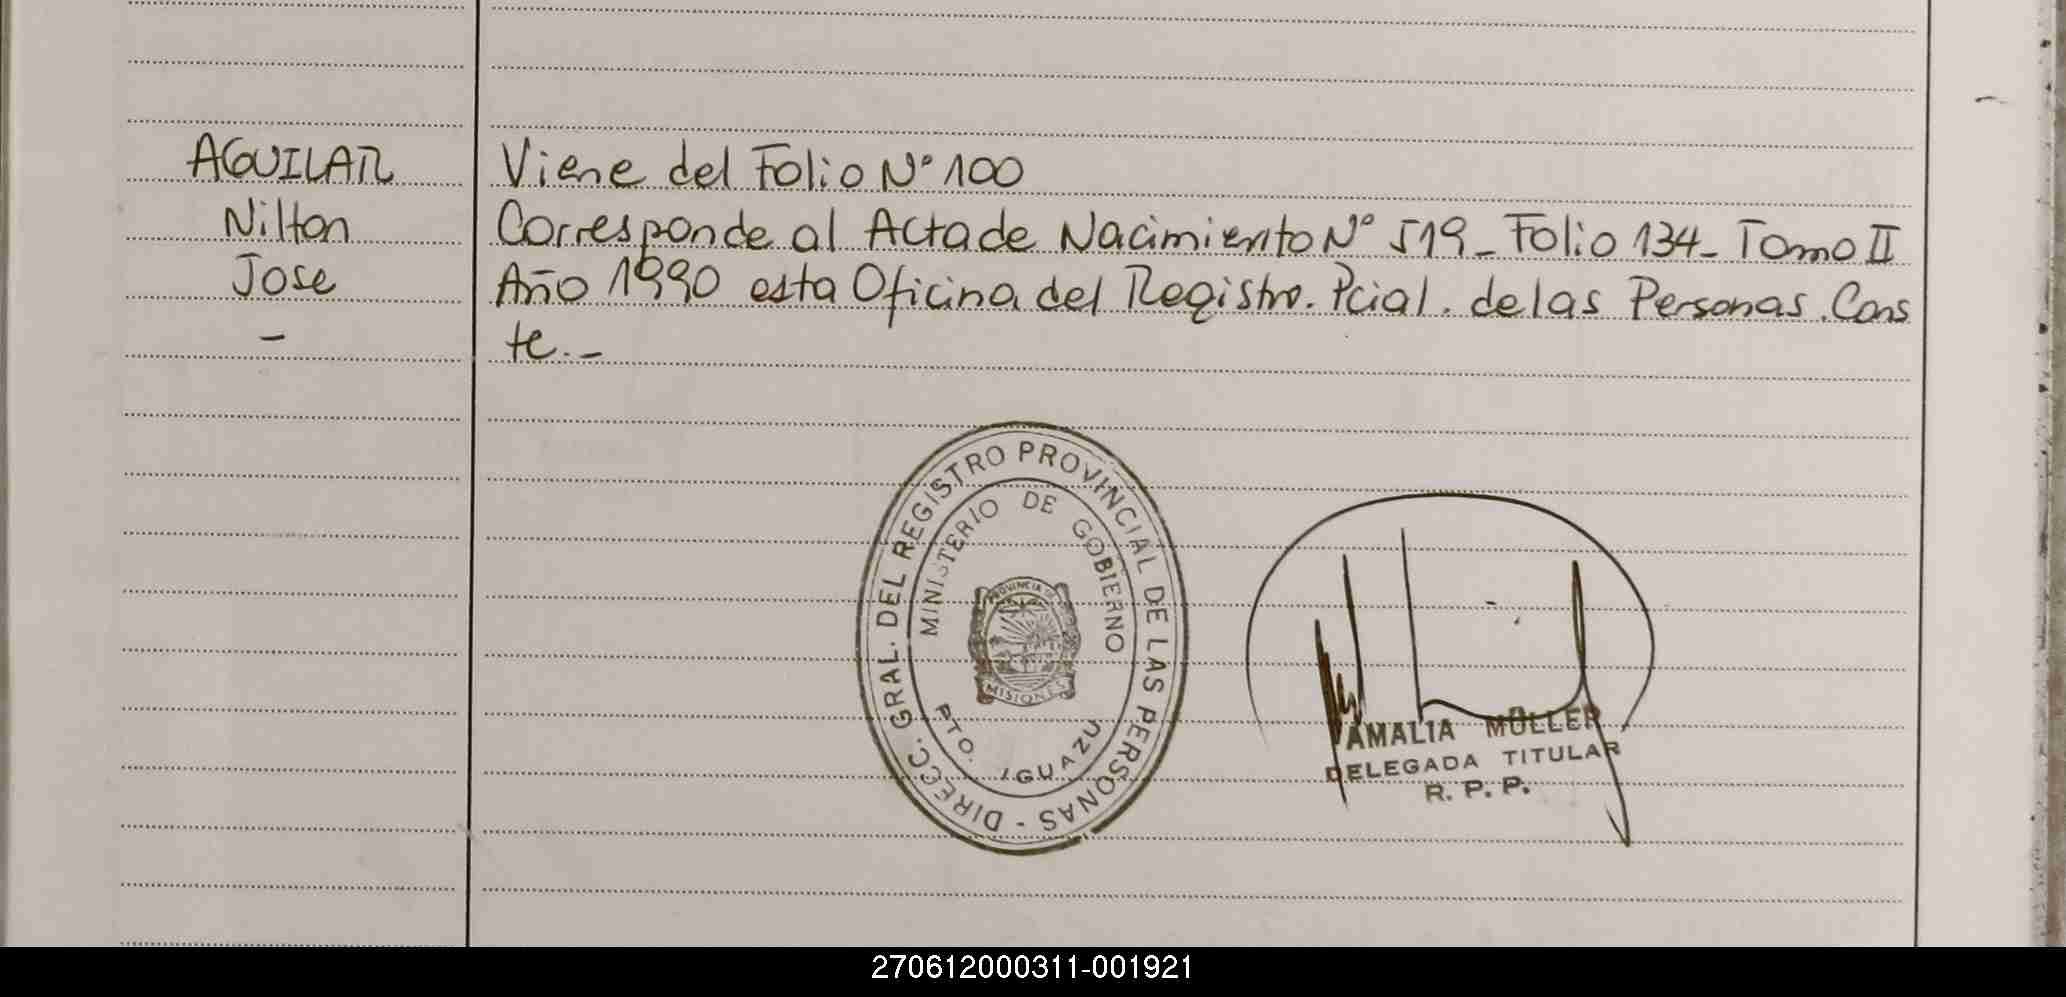 AGUILAR
Nilton
Jose
-
Viene del Folio N° 100
Corresponde al Acta de Nacimiento N° 519_ Folio 134_ Tomo II
Año 1990 esta Oficina del Registro. Pcial. de las Personas. Cons
te._
DIRECC. GRAL. DEL REGISTRO PROVINCIAL DE LAS PERSONAS -
MINISTERIO DE GOBIERNO
PROVINCIA DE
MISIONES
PTO. IGUAZU
AMALIA MÜLLER
DELEGADA TITULAR
R. P. P.
270612000311-001921